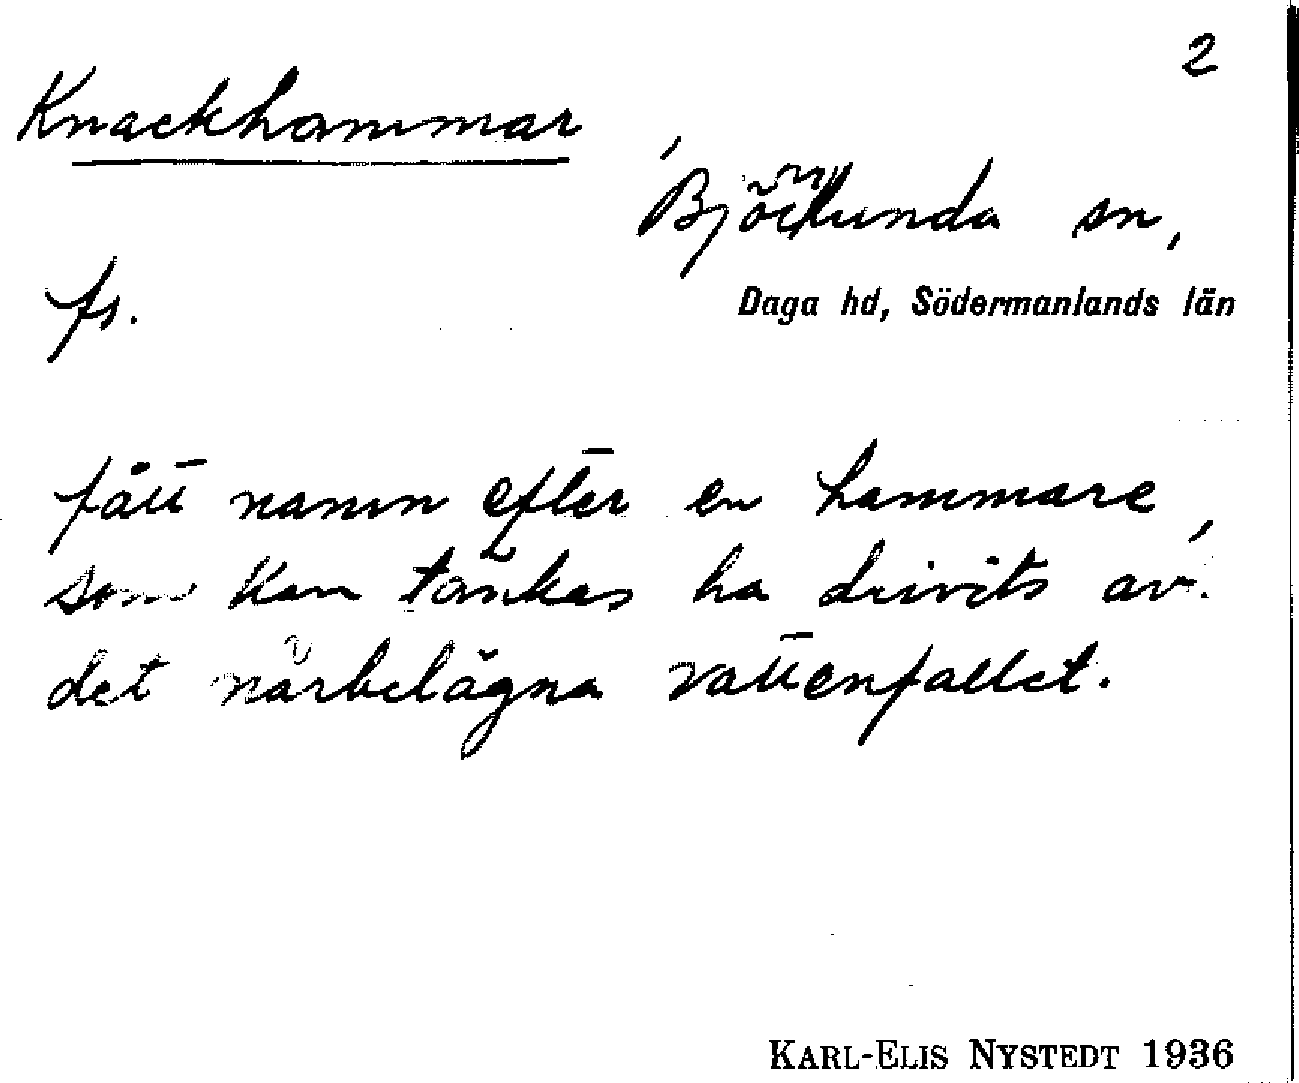 2
Knackhammar
Björnlunda sn,
Daga hd, Södermanlands län
fs.
fått namn efter en hammare,
som kan tänkas ha drivits av
det närbelägna vattenfallet.
KARL-ELIS NYSTEDT 1936